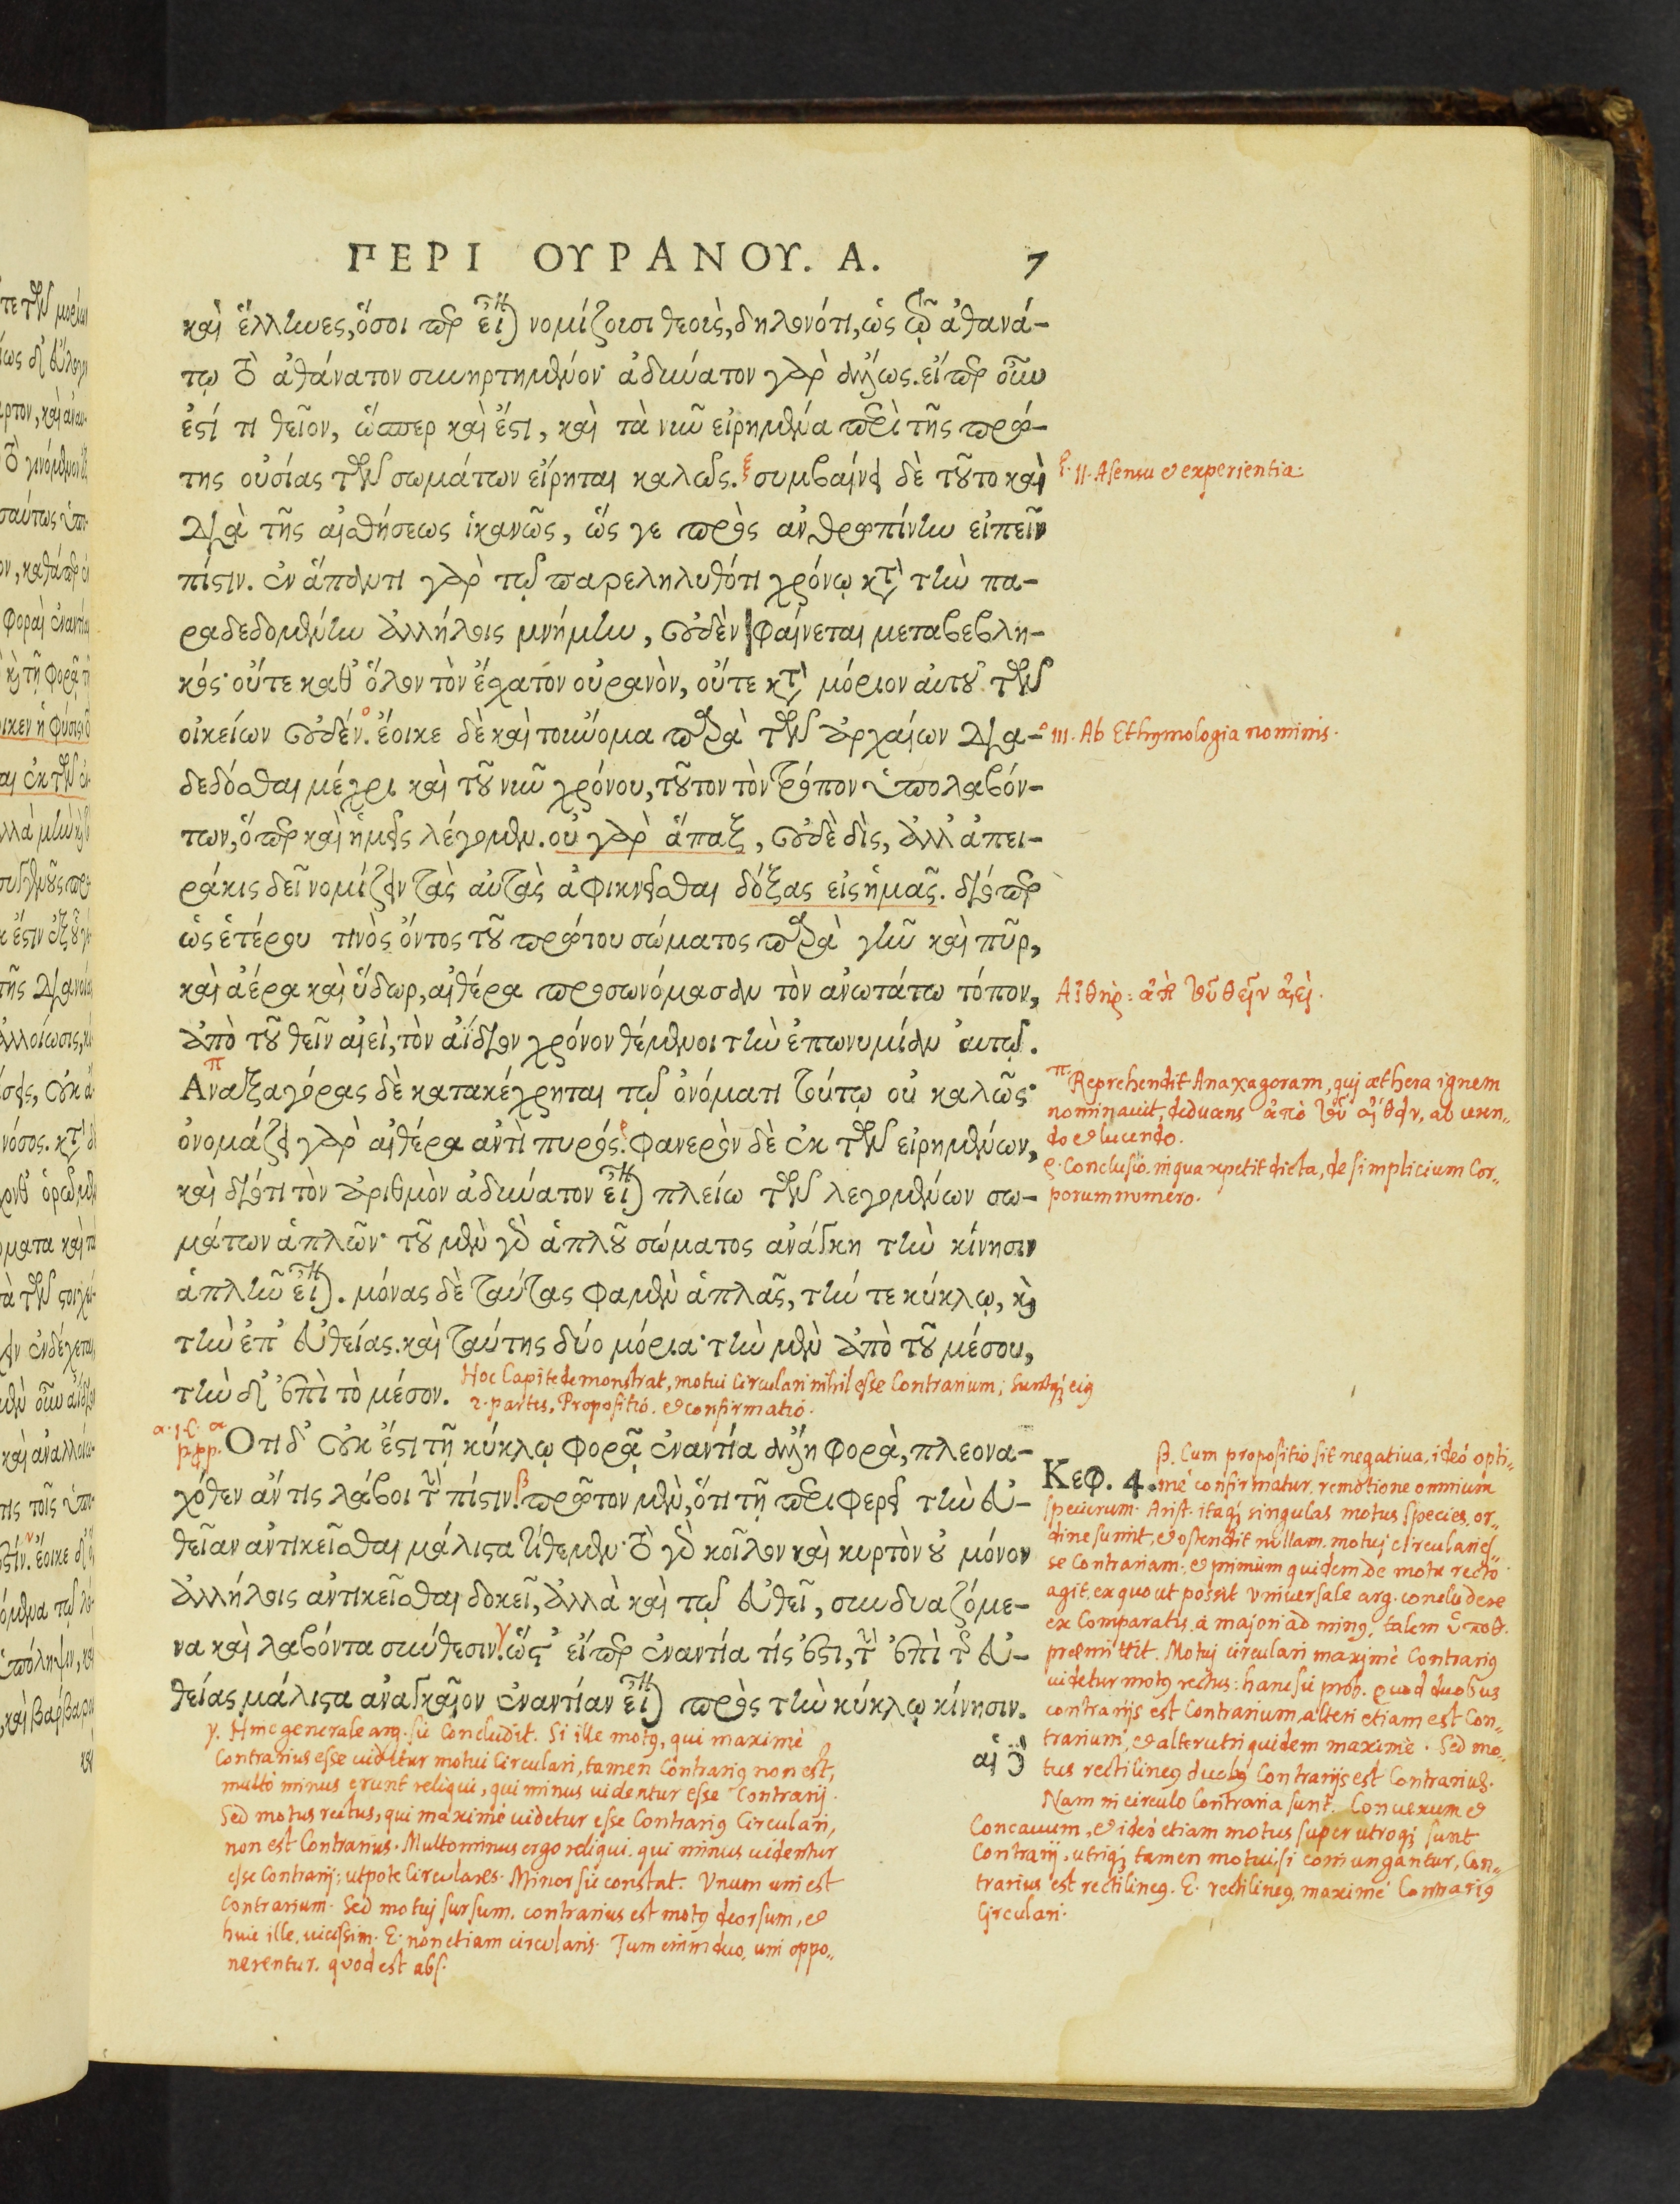 ΠΕΡΙ ΟΥΡΑΝΟΥ. Α. 7
καὶ ἕλληνες, ὅσοι περ εἶναι νομίζουσι θεοὺς, δηλονότι, ὡς τῷ ἀθανά-
τῳ τὸ ἀθάνατον συνηρτημένον· ἀδύνατον γὰρ ἄλλως. εἴπερ οὖν
ἐστί τι θεῖον, ὥσπερ καὶ ἔστι, καὶ τὰ νῦν εἰρημένα περὶ τῆς πρώ-
της οὐσίας τῶν σωμάτων εἴρηται καλῶς. ξ συμβαίνει δὲ τοῦτο καὶ
ξ. II. A sensu et experientia.
διὰ τῆς αἰσθήσεως ἱκανῶς, ὥς γε πρὸς ἀνθρωπίνην εἰπεῖν
πίστιν. ἐν ἅπαντι γὰρ τῷ παρεληλυθότι χρόνῳ κατὰ τὴν πα-
ραδεδομένην ἀλλήλοις μνήμην, οὐδὲν φαίνεται μεταβεβλη-
κός· οὔτε καθ' ὅλον τὸν ἔσχατον οὐρανὸν, οὔτε κατὰ μόριον αὐτοῦ τῶν
οἰκείων οὐδέν. ο ἔοικε δὲ καὶ τοὔνομα παρὰ τῶν ἀρχαίων δια-
ο III. Ab Ethymologia nominis.
δεδόσθαι μέχρι καὶ τοῦ νῦν χρόνου, τοῦτον τὸν τρόπον ὑπολαβόν-
των, ὅπερ καὶ ἡμεῖς λέγομεν. οὐ γὰρ ἅπαξ, οὐδὲ δὶς, ἀλλ' ἀπει-
ράκις δεῖ νομίζειν τὰς αὐτὰς ἀφικνεῖσθαι δόξας εἰς ἡμᾶς. διόπερ
ὡς ἑτέρου τινὸς ὄντος τοῦ πρώτου σώματος παρὰ γῆν καὶ πῦρ,
καὶ ἀέρα καὶ ὕδωρ, αἰθέρα προσωνόμασαν τὸν ἀνωτάτω τόπον,
Αἰθὴρ: ἀπὸ τοῦ θεῖν ἀεί.
ἀπὸ τοῦ θεῖν ἀεὶ, τὸν ἀΐδιον χρόνον θέμενοι τὴν ἐπωνυμίαν αὐτῷ.
π Αναξαγόρας δὲ κατακέχρηται τῷ ὀνόματι τούτῳ οὐ καλῶς·
π. Reprehendit Anaxagoram, qui æthera ignem
nominavit, deducens ἀπὸ τοῦ αἴθειν, ab uren-
do et lucendo.
ὀνομάζει γὰρ αἰθέρα ἀντὶ πυρός. ρ φανερὸν δὲ ἐκ τῶν εἰρημένων,
ρ. Conclusio. in qua repetit dicta, de simplicium Cor-
porum numero.
καὶ διότι τὸν ἀριθμὸν ἀδύνατον εἶναι πλείω τῶν λεγομένων σω-
μάτων ἁπλῶν· τοῦ μὲν γὰρ ἁπλοῦ σώματος ἀνάγκη τὴν κίνησιν
ἁπλῆν εἶναι. μόνας δὲ ταύτας φαμὲν ἁπλᾶς, τήν τε κύκλῳ, καὶ
τὴν ἐπ' εὐθείας. καὶ ταύτης δύο μόρια· τὴν μὲν ἀπὸ τοῦ μέσου,
τὴν δ' ἐπὶ τὸ μέσον.
Hoc Capite demonstrat, motui Circulari nihil esse Contrarium; suntq; eiq
2. partes, Propositio. et confirmatio.
Κεφ. 4.
Οτι δ' οὐκ ἔστι τῇ κύκλῳ φορᾷ ἐναντία ἄλλη φορὰ, πλεονα-
χόθεν ἄν τις λάβοι τὴν πίστιν. β πρῶτον μὲν, ὅτι τῇ περιφερεῖ τὴν εὐ-
θεῖαν ἀντικεῖσθαι μάλιστα τίθεμεν· τὸ γὰρ κοῖλον καὶ κυρτὸν οὐ μόνον
ἀλλήλοις ἀντικεῖσθαι δοκεῖ, ἀλλὰ καὶ τῷ εὐθεῖ, συνδυαζόμε-
να καὶ λαβόντα σύνθεσιν. γ ὥστ' εἴπερ ἐναντία τίς ἐστι, τὴν ἐπὶ τῆς εὐ-
θείας μάλιστα ἀναγκαῖον ἐναντίαν εἶναι πρὸς τὴν κύκλῳ κίνησιν.
αἱ δὲ
β. Cum propositio sit negativa, ideó opti-
mé confirmatur, remotione omnium
specierum. Arist. itaq; singulas motus species, or-
dine sumit, et ostendit nullam motui circulari es-
se Contrariam: et primùm quidem de motu recto
agit, ex quo ut possit universale arg. concludere
ex Comparatis, à majori ad minq, talem ὑποθ.
præmittit. Motui circulari maximè Contrariq
videtur motq rectus: hanc sic prob. quod duobus
contrarijs est Contrarium, alteri etiam est Con-
trarium, et alterutri quidem maximè. Sed mo-
tus rectilineq duobq Contrarijs est Contrarius.
Nam in circulo Contraria sunt. Convexum et
Concavum, et ideó etiam motus super utroq; sunt
Contrarij, utriq; tamen motui, si coniungantur, Con-
trarius est rectilineq. E. rectilineq, maximè Contrariq
Circulari.
γ. Hinc generale arg. sic Concludit. Si ille motq, qui maximè
Contrarius esse videtur motui Circulari, tamen Contrariq non est,
multò minus erunt reliqui, qui minus videntur esse Contrarij.
Sed motus rectus, qui maximè videtur esse Contrariq Circulari,
non est Contrarius. Multo minus ergo reliqui, qui minus videntur
esse Contrarij; utpote Circulares. Minor sic constat. Unum uni est
Contrarium. Sed motui sursum, contrarius est motq deorsum, et
huic ille, vicissim. E. non etiam circularis. Tum enim duo, uni oppo-
nerentur. quod est abs.